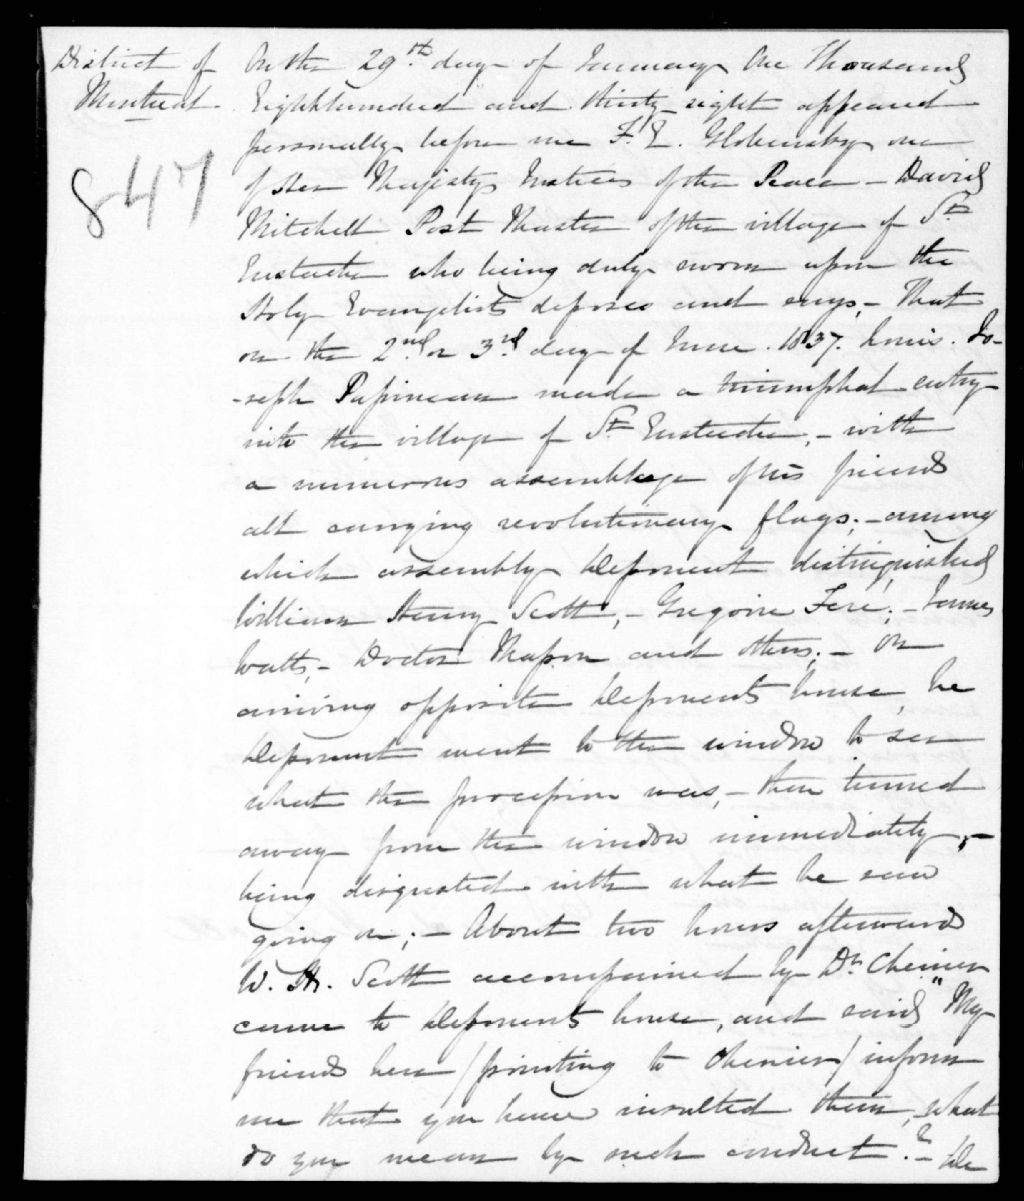 District of
Montreal.
847
On the 29th day of January One Thousand
Eighthundred and thirty-eight appeared
personally before me F. E. Globensky one
of Her Majestys Justices of the Peace – David
Mitchell Post Master of the village of St
Eustache who being duly sworn upon the
Holy Evangelists deposes and says, – That
on the 2nd or 3rd day of June 1837. Louis Jo-
-seph Papineau made a triumphal entry
into the village of St Eustache, – with
a numerous assemblage of his friends
all carrying revolutionary flags; – among
which assembly Deponent distinguished
William Henry Scott, – Gregoire Feré; – James
Watts, – Doctor Masson and others; – On
arriving opposite Deponents house, he
Deponent went to the window to see
what the procession was, – then turned
away from the window immediately, –
being disgusted with what he saw
going on; – About two hours afterwards
W. H. Scott accompanied by Dr. Chenier
came to Deponents house, and said "My
friend here /pointing to Chenier/ informs
me that you have insulted them, what
do you mean by such conduct? – De